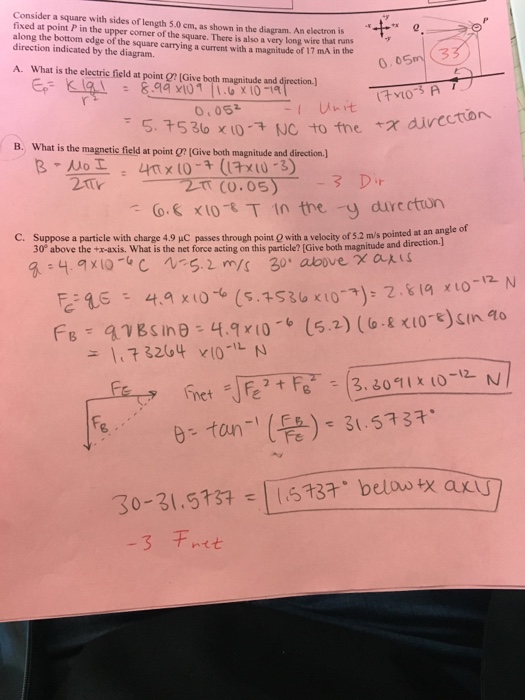 Consider a square with sides of length 5.0 cm, as shown in the diagram. An electron is
fixed at point P in the upper corner of the square. There is also a very long wire that runs
along the bottom edge of the square carrying a current with a magnitude of 17 mA in the
direction indicated by the diagram.
Q.
P
0.05m
33
17x10-3 A
I
A. What is the electric field at point Q? [Give both magnitude and direction.]
= 8.99 x10 9 |1.6 x 10 -19|
r²
0.05²
-1 Unit
= 5.7536 x 10-7 NC to the +x direction
B. What is the magnetic field at point Q? [Give both magnitude and direction.]
B = μo I = 4π x 10-7 (17x10-3)
2πr 2π (0.05)
-3 Dir
= 6.8 x10-8 T in the -y direction
C. Suppose a particle with charge 4.9 μC passes through point Q with a velocity of 5.2 m/s pointed at an angle of
30° above the +x-axis. What is the net force acting on this particle? [Give both magnitude and direction.]
q = 4.9x10-6 C v=5.2 m/s 30° above x axis
FE = qE = 4.9 x10-6 (5.7536 x10-7) = 2.819 x10-12 N
FB = qvBsinθ = 4.9x10-6 (5.2) (6.8 x10-8) sin 90
= 1.73264 x10-12 N
FE
FB
Fnet = √FE² + FB² = 3.3091x10-12 N
θ = tan-1 (FB/FE) = 31.5737°
30-31.5737 = 1.5737° below +x axis
-3 Fnet